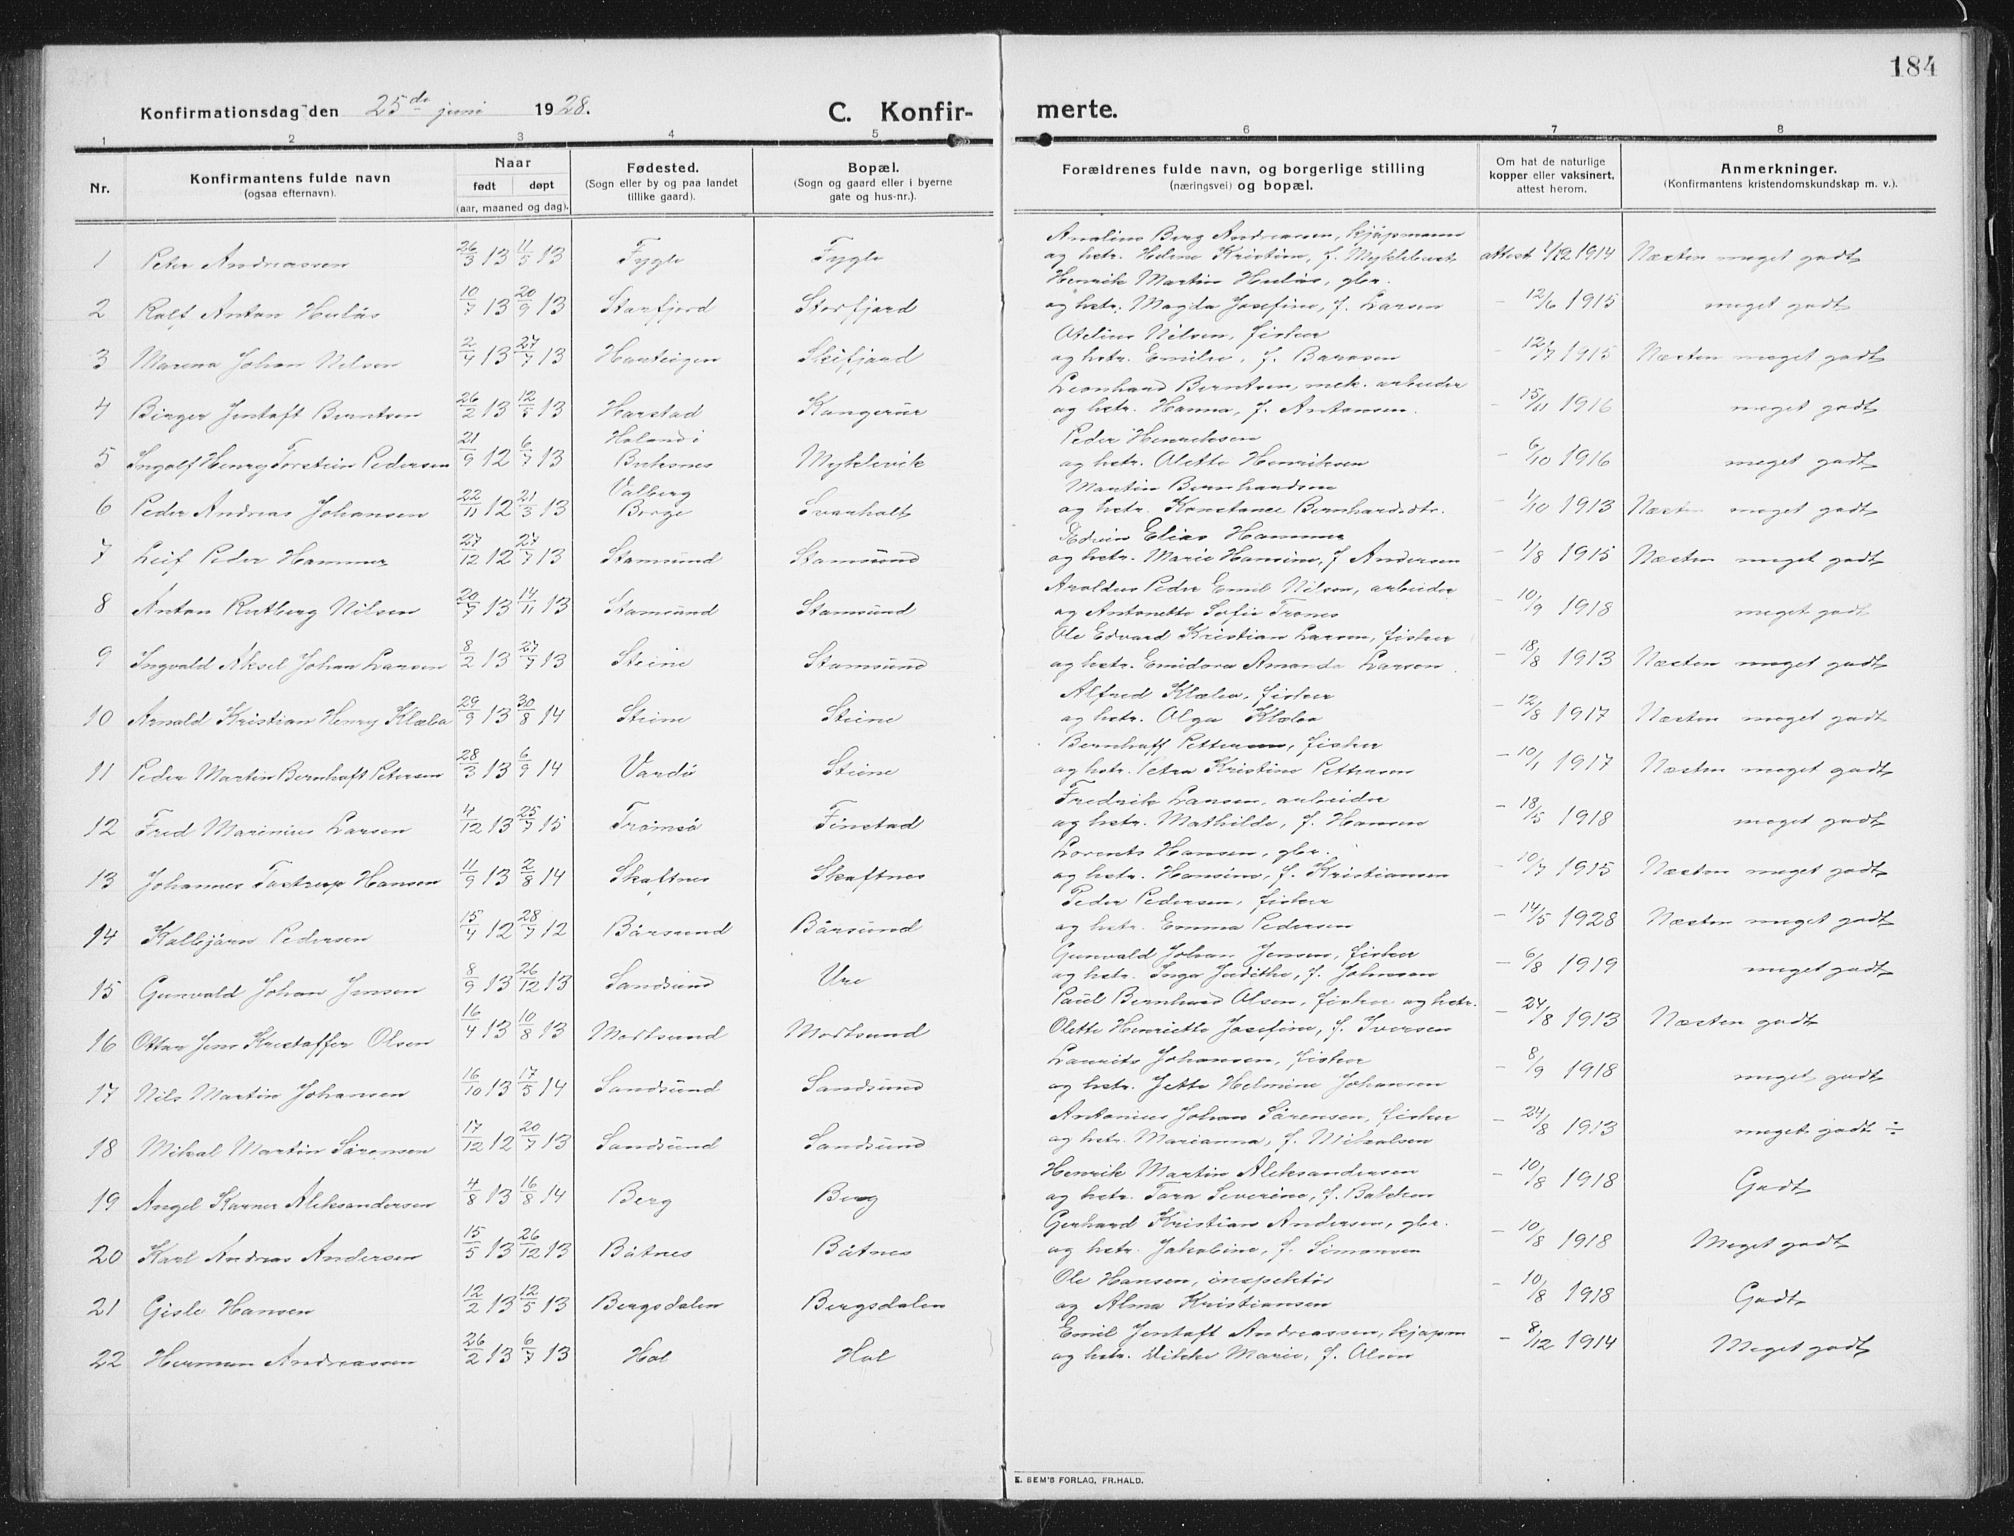 184
Konfirmationsdag den 25de juni 1928.
C. Konfirmerte.
1 2 3 4 5 6 7 8
Nr.
Konfirmantens fulde navn
(ogsaa efternavn).
Naar
født døpt
(aar, maaned og dag).
Fødested.
(Sogn eller by og paa landet
tillike gaard).
Bopæl.
(Sogn og gaard eller i byerne
gate og hus-nr.).
Forældrenes fulde navn, og borgerlige stilling
(næringsvei) og bopæl.
Om hat de naturlige
kopper eller vaksinert,
attest herom.
Anmerkninger.
(Konfirmantens kristendomskundskap m. v.).
1 Peter Andreassen 26/3 13 11/5 13 Fygle Fygle
Berg Andreassen, kjøpmann
og hstr. Helene Kristine, f. Myklebust attest 1/12 1914 Næsten meget godt
2 Rolf Anton Huløs 10/7 13 20/9 13 Storfjord Storfjord
Henrik Martin Huløs, gbr.
og hstr. Magda Josefine, f. Larsen - 12/6 1915 meget godt
3 Johan Nilsen 2/4 13 27/7 13 Skifjord
Otelius Nilsen, fisker
og hstr. Emilie, f. - 12/7 1915 Næsten meget godt
4 Birger Jentoft Berntsen 26/2 13 12/5 13 Harstad Kangerur
Leonhard Berntsen, mek. arbeider
og hstr. Hanna, f. Antonsen. - 15/11 1916 meget godt
5 Ingolf Henry Torstein Pedersen 21/9 12 6/7 13 Holand i
Buksnes Myklevik
Peder Henriksen
og hstr. Olette Henriksen - 6/10 1916 meget godt
6 Peder Andreas Johansen 22/11 12 21/3 13 Valberg
Borge Svarholt
Martin Bernhardsen
og hstr. Konstance Bernhardsdtr. - 1/10 1913 Næsten meget godt
7 Leif Peder Hammer 27/12 12 27/7 13 Stamsund Stamsund
Edvin Elias Hammer
og hstr. Marie Hansine, f. Andersen - 1/8 1915 Næsten meget godt
8 Anton Rutberg Nilsen 20/7 13 14/11 13 Stamsund Stamsund
Peder Emil Nilsen, arbeider
og Antonette Sofie Trones - 10/9 1918 meget godt
9 Ingvald Aksel Johan Larsen 8/2 13 27/7 13 Steine Stamsund
Ole Edvard Kristian Larsen, fisker
og hstr. Emidora Amanda Larsen - 18/8 1913 Næsten meget godt
10 Arnold Kristian Henry Klæbo 29/9 13 30/8 14 Steine Steine
Alfred Klæbo, fisker
og hstr. Olga Klæbo - 12/8 1917 Næsten meget godt
11 Peder Martin Bernhoft Petersen 28/3 13 6/9 14 Vardö Steine
Bernhoff Pettersen, fisker
og hstr. Petra Kristine Pettersen - 10/1 1917 Næsten meget godt
12 Fred Marinius Larsen 4/12 13 25/7 15 Tromsö Finstad
Fredrik Larsen, arbeider
og hstr. Mathilde, f. Hansen - 18/5 1918 meget godt
13 Johannes Tastrup Hansen 11/9 13 2/8 14 Skaftnes Skaftnes
Lorents Hansen, gbr.
og hstr. Hansine, f. Kristiansen - 10/7 1915 Næsten meget godt
14 Kolbjørn Pedersen 15/4 12 28/7 12 Bårsund Bårsund
Peder Pedersen, fisker
og hstr. Emma Pedersen - 14/5 1928 Næsten meget godt
15 Gunvald Johan Jensen 8/9 13 26/12 13 Sandsund Ure
Gunvald Johan Jensen, fisker
og hstr. Inga Judithe, f. Johnsen - 6/8 1919 meget godt
16 Ottar Jens Kristoffer Olsen 16/4 13 10/8 13 Mortsund Mortsund
Paul Bernhard Olsen, fisker og hstr.
Olette Henriette Josefine, f. Iversen - 24/8 1913 Næsten godt
17 Nils Martin Johansen 16/10 13 17/5 14 Sandsund Sandsund
Laurits Johansen, fisker
og hstr. Jette Helmine Johansen - 8/9 1918 meget godt
18 Mikal Martin Sørensen 17/12 12 20/7 13 Sandsund Sandsund
Antonius Johan Sørensen, fisker
og hstr. Marianna, f. Mikalsen - 24/8 1913 meget godt ÷
19 Angel Karner Aleksandersen 4/8 13 16/8 14 Berg Berg
Henrik Martin Aleksandersen
og hstr. Tora Severine, f. Bakken - 10/8 1918 Godt
20 Karl Andreas Andersen 15/5 13 26/12 13 Båtnes Båtnes
Gerhard Kristian Andersen, gbr.
og hstr. Jakobine, f. Simonsen - 10/8 1918 Meget godt
21 Gisle Hansen 12/2 13 12/5 13 Bergsdalen Bergsdalen
Ole Hansen, inspektör
og Alma Kristiansen - 10/8 1918 Godt
22 Herman Andreassen 26/2 13 6/7 13 Hol Hol
Emil Jentoft Andreassen, kjøpm
og hstr. Vikke Marie, f. Olsen - 8/12 1914 Meget godt
E. SEM'S FORLAG, FR.HALD.